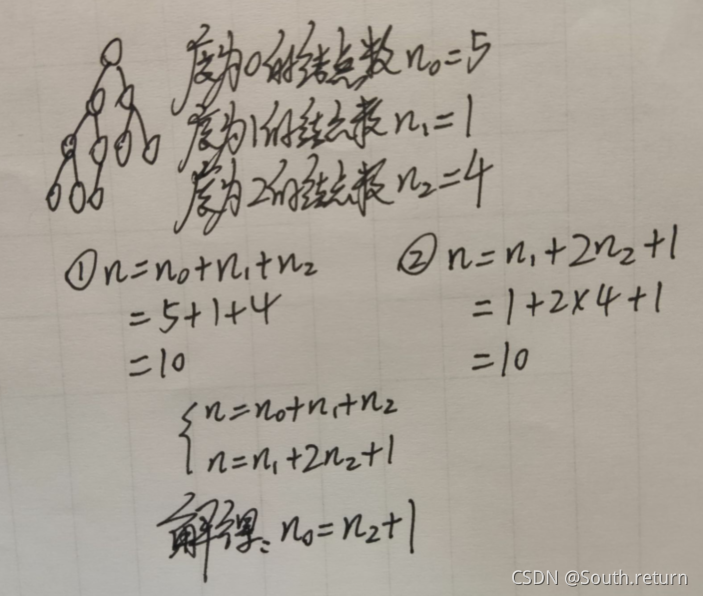 度为0的结点数n₀=5
度为1的结点数n₁=1
度为2的结点数n₂=4
①n=n₀+n₁+n₂ ②n=n₁+2n₂+1
=5+1+4 =1+2×4+1
=10 =10
n=n₀+n₁+n₂
n=n₁+2n₂+1
解得:n₀=n₂+1
CSDN @South.return